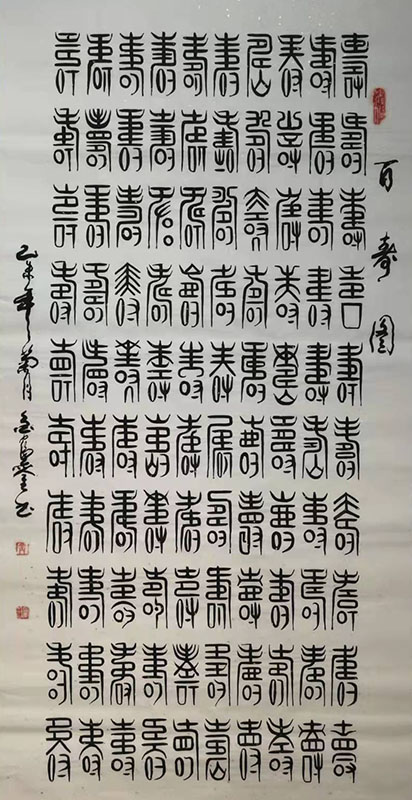 百壽圖
壽壽壽壽壽壽壽壽壽壽
壽壽壽壽壽壽壽壽壽壽
壽壽壽壽壽壽壽壽壽壽
壽壽壽壽壽壽壽壽壽壽
壽壽壽壽壽壽壽壽壽壽
壽壽壽壽壽壽壽壽壽壽
壽壽壽壽壽壽壽壽壽壽
壽壽壽壽壽壽壽壽壽壽
壽壽壽壽壽壽壽壽壽壽
壽壽壽壽壽壽壽壽壽壽
未年菊月书